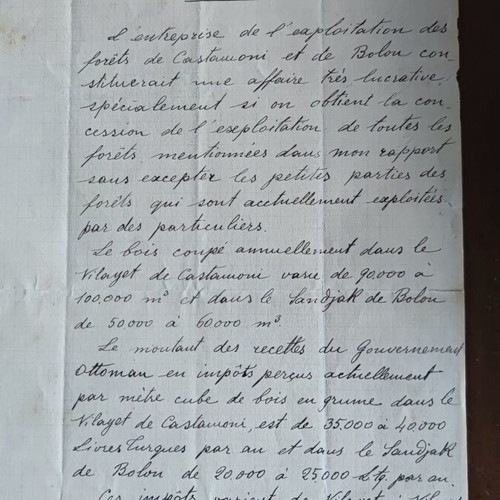 L'entreprise de l'exploitation des
forêts de Castamoni et de Bolou con-
stituerait une affaire très lucrative,
spécialement si on obtient la con-
cession de l'exploitation de toutes les
forêts mentionnées dans mon rapport
sans excepter les petites parties des
forêts qui sont acctuellement exploitées
par des particuliers.
Le bois coupé annuellement dans le
Vilayet de Castamoni varie de 90.000 à
100,000 m³ et dans le Sandjak de Bolou
de 50000 à 60000 m³.
Le montant des recettes du Gouvernement
Ottoman en impôts perçus actuellement
par mètre cube de bois en grume dans le
Vilayet de Castamoni, est de 35,000 à 40000
Livres Turques par an et dans le Sandjak
de Bolou de 20,000 à 25000 Ltq. par an.
Ces impôts varient de Vilayet